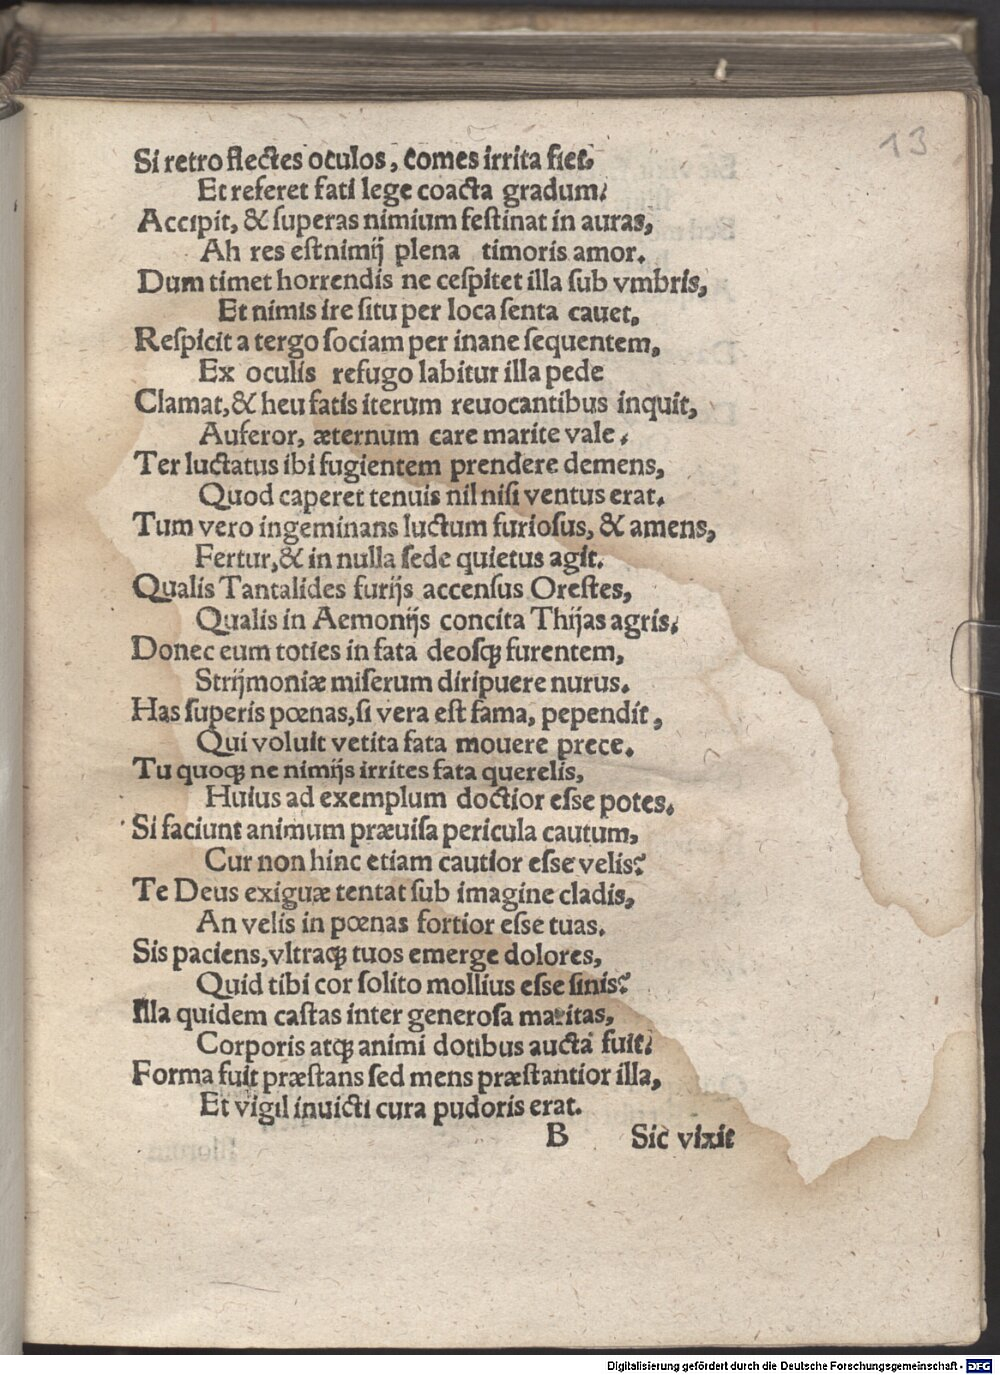 13
Si retro flectes oculos, comes irrita fiet.
Et referet fati lege coacta gradum.
Accipit, & superas nimium festinat in auras,
Ah res estnimij plena timoris amor.
Dum timet horrendis ne cespitet illa sub vmbris,
Et nimis ire situ per loca senta cauet.
Respicit a tergo sociam per inane sequentem,
Ex oculis refugo labitur illa pede
Clamat, & heu fatis iterum reuocantibus inquit,
Auferor, æternum care marite vale.
Ter luctatus ibi fugientem prendere demens,
Quod caperet tenuis nil nisi ventus erat.
Tum vero ingeminans luctum furiosus, & amens,
Fertur, & in nulla sede quietus agit.
Qualis Tantalides furijs accensus Orestes,
Qualis in Aemonijs concita Thijas agris.
Donec eum toties in fata deosqꝫ furentem,
Strijmoniæ miserum diripuere nurus.
Has superis pœnas, si vera est fama, pependit,
Qui voluit vetita fata mouere prece.
Tu quoqꝫ ne nimijs irrites fata querelis,
Huius ad exemplum doctior esse potes.
Si faciunt animum præuisa pericula cautum,
Cur non hinc etiam cautior esse velis?
Te Deus exiguæ tentat sub imagine cladis,
An velis in pœnas fortior esse tuas.
Sis paciens, vltraqꝫ tuos emerge dolores,
Quid tibi cor solito mollius esse sinis?
Illa quidem castas inter generosa maritas,
Corporis atqꝫ animi dotibus aucta fuit.
Forma fuit præstans sed mens præstantior illa,
Et vigil inuicti cura pudoris erat.
B Sic vixit
Digitalisierung gefördert durch die Deutsche Forschungsgemeinschaft - DFG